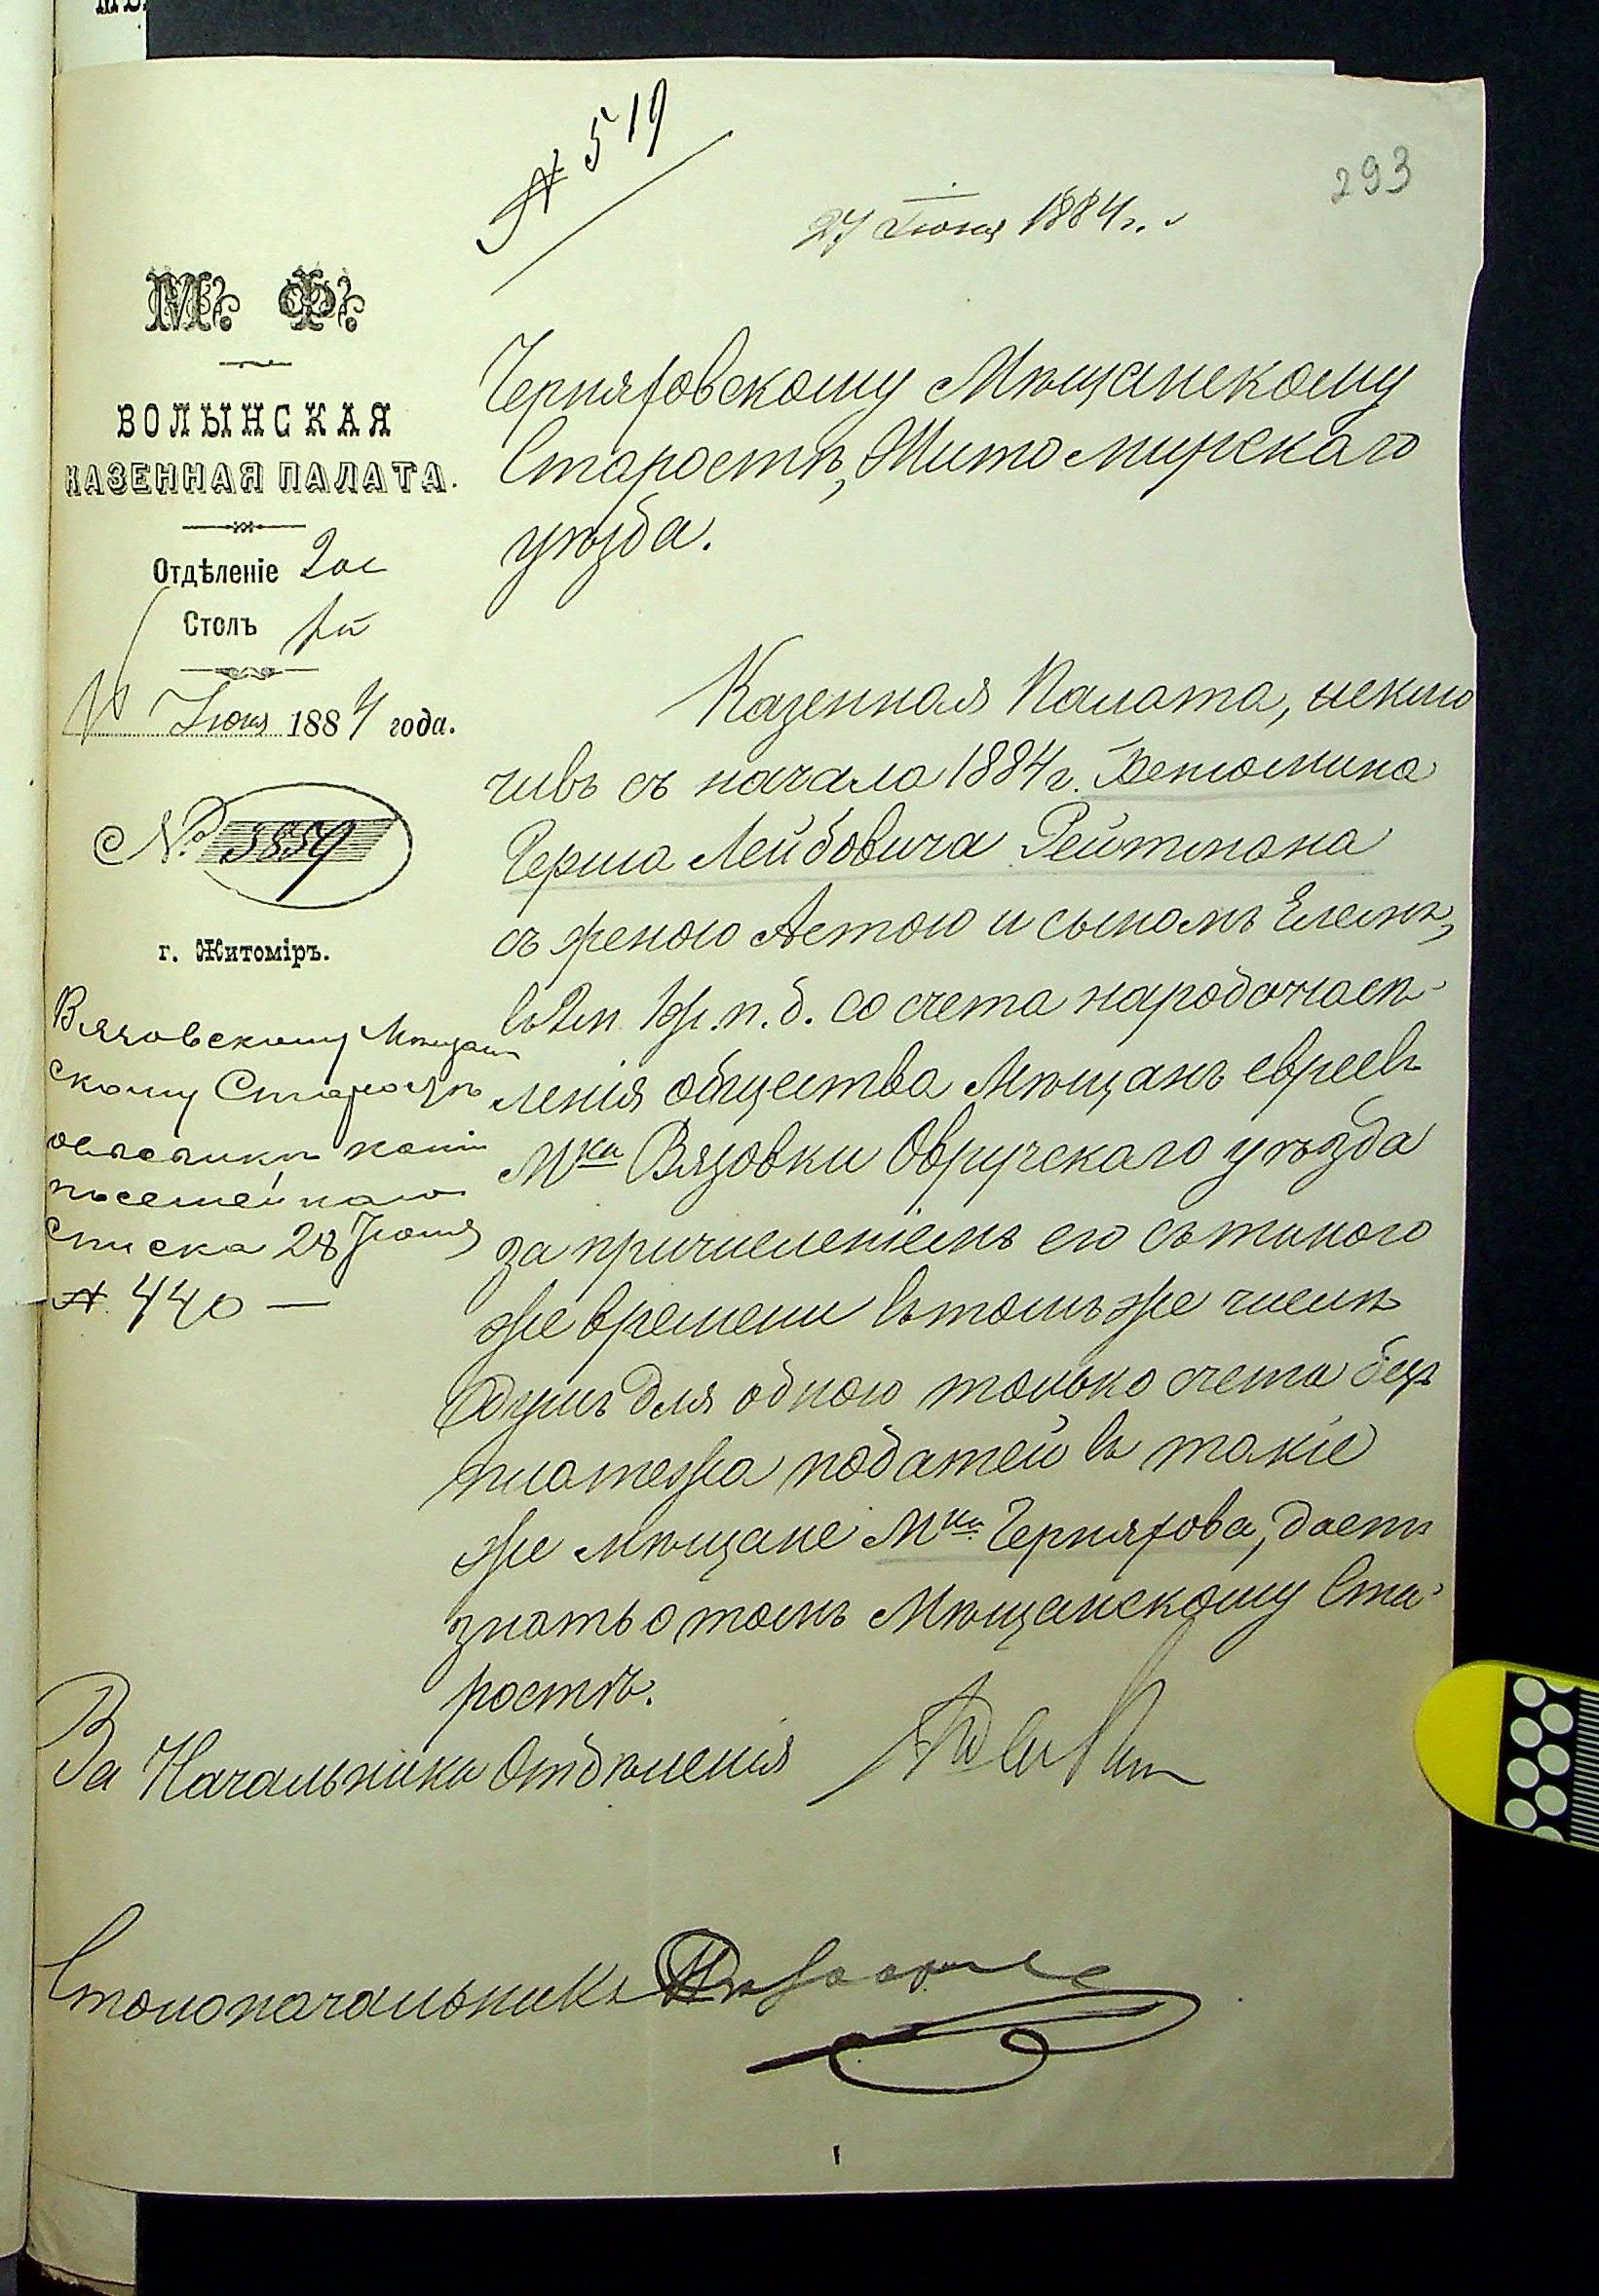 № 519
293
27 Іюня 1884 г.
М. Ф.
ВОЛЫНСКАЯ
КАЗЕННАЯ ПАЛАТА.
Отдѣленіе 2ое
Столъ 1й
Іюня 1884 года.
№ 3859
г. Житоміръ.
Черняховскому Мѣщанскому
Старостѣ, Житомирскаго
уѣзда.
Казенная Палата, исклю
чивъ съ начала 1884 г. Бенюмина
Герша Лейбовича Рейтмана
съ женою и сыномъ
въ 2 м. 1 ж. п. д. со счета народонасе-
ленія общества Мѣщанъ евреевъ
Мка Вязовки Овручскаго уѣзда
за причисленіемъ его съ того
же времени въ томъ же числѣ
душъ для одного только счета безъ
платежа податей въ такіе
же мѣщане Мка Черняхова, даетъ
знать о томъ Мѣщанскому Ста-
ростѣ.
За Начальника Отдѣленія
Столоначальникъ
Вязовскому Мѣщан
скому Старостѣ
копіи
посемейнаго
списка 28 Іюня
№ 440 —